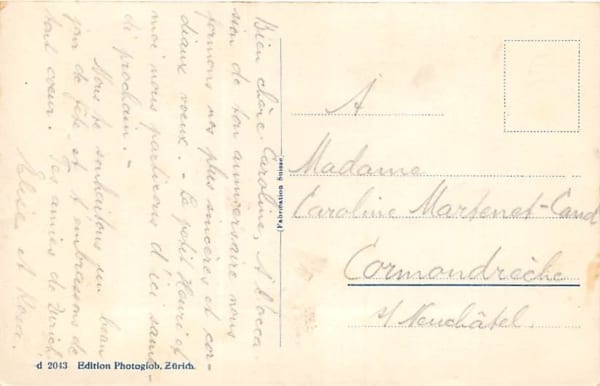 Bien chère Caroline, A l'occa-
sion de ton anniversaire nous
formons nos plus sincères et cor-
diaux voeux. - Le petit Henri et
moi nous partirons d'ici same-
di prochain. -
Nous te souhaitons un beau
jour de fête et t'embrassons de
tout coeur. Tes amies de Zurich
et Rosa.
Fabrication Suisse
À
Madame
Caroline Martenet-Cand
Cormondrèche
s/ Neuchâtel.
d 2043 Edition Photoglob, Zürich.